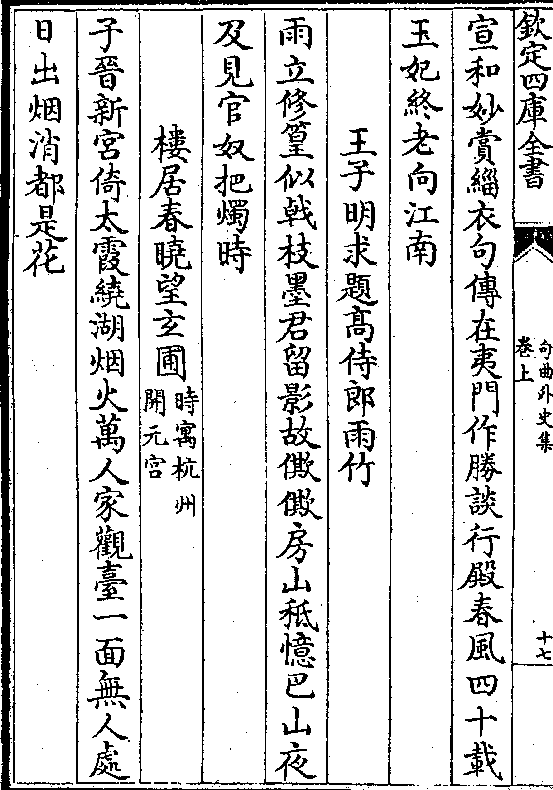 欽定四庫全書
句曲外史集
卷上
十七
宣和妙賞緇衣句傳在夷門作勝談行殿春風四十載
玉妃終老向江南
王子明求題髙侍郎雨竹
雨立修篁似㦸枝墨君留影故僛僛房山秪憶巴山夜
及見官奴把燭時
樓居春曉望玄圃時寓杭州開元宫
子晉新宫倚太霞繞湖烟火萬人家觀臺一面無人處
日出烟消都是花